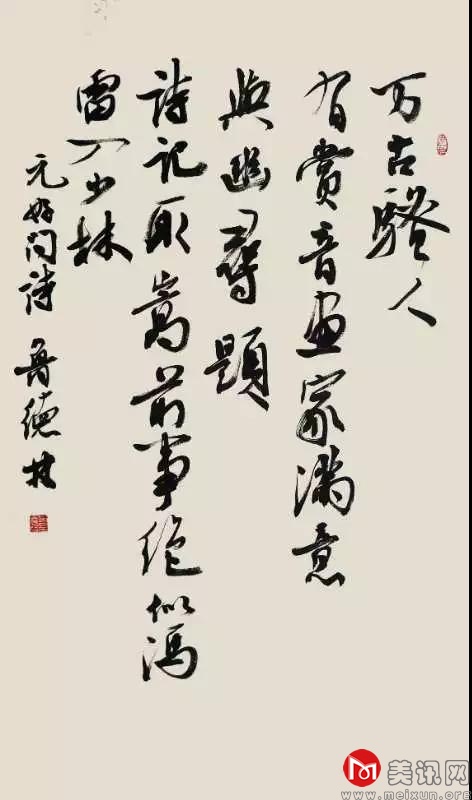 万古骚人
有赏音画家满意
与幽寻题
詩記取嵩前事絶似馮
雷入少林
元好问詩 鲁德
美讯网
www.meixun.org